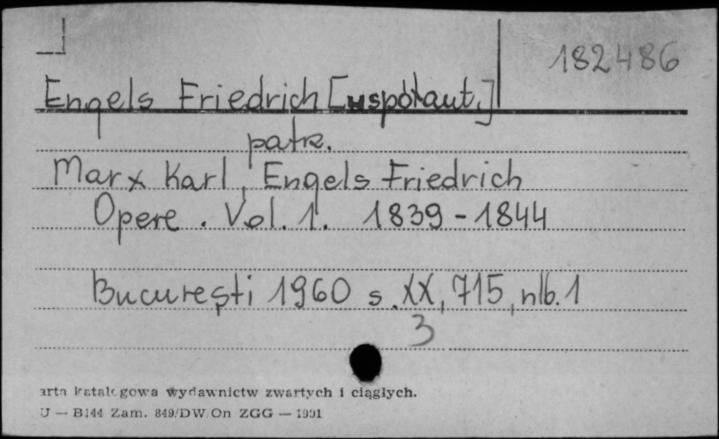 182486
Engels Friedrich [współaut.]
patrz.
Marx Karl, Engels Friedrich
Opere. Vol. 1. 1839-1844
București 1960 s. XX, 715, nlb. 1
3
arta katalogowa wydawnictw zwartych i ciągłych.
U — B144 Zam. 849/DW/On ZGG — 1991